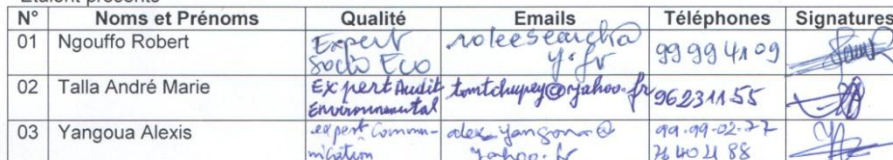 Etaient présents
N° Noms et Prénoms Qualité Emails Téléphones Signatures
01 Ngouffo Robert Expert Socio Eco y.fr 99 99 41 09
02 Talla André Marie Expert Audit Environnemental tomtchupey@yahoo.fr 96231155
03 Yangoua Alexis expert Communication alex_yangoua@yahoo.fr 99-99-02-77